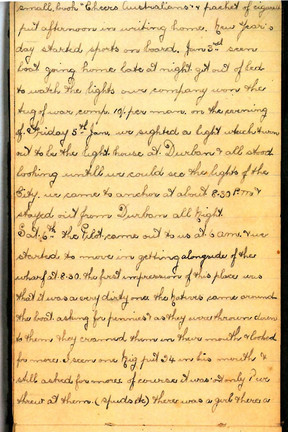 small book "Cheers Australians" & packet of cigaretts
put afternoon in writing home. New Year's
day started sports on board. Jan 3rd seen
boat going home late at night got out of bed
to watch the lights our company won the
tug of war comp. 10/- per man. on the evening
of Friday 5th Jan. we sighted a light which turn
out to be the light house at Durban & all stood
looking untill we could see the lights of the
City. we came to anchor at about 8.30 P.m. &
stayed out from Durban all Night.
Sat. 6th the Pilot came out to us at 6 am. & we
started to move in getting alongside of the
wharf at 8.30. the first impression of this place was
that it was a very dirty one the natives came around
the boat asking for pennies & as they were thrown down
to them they cramed them in their mouth & looked
for more. I seen one Nig put 24 in his mouth &
still asked for more of course it was not only
threw at them. (spuds etc) there was a girl there a